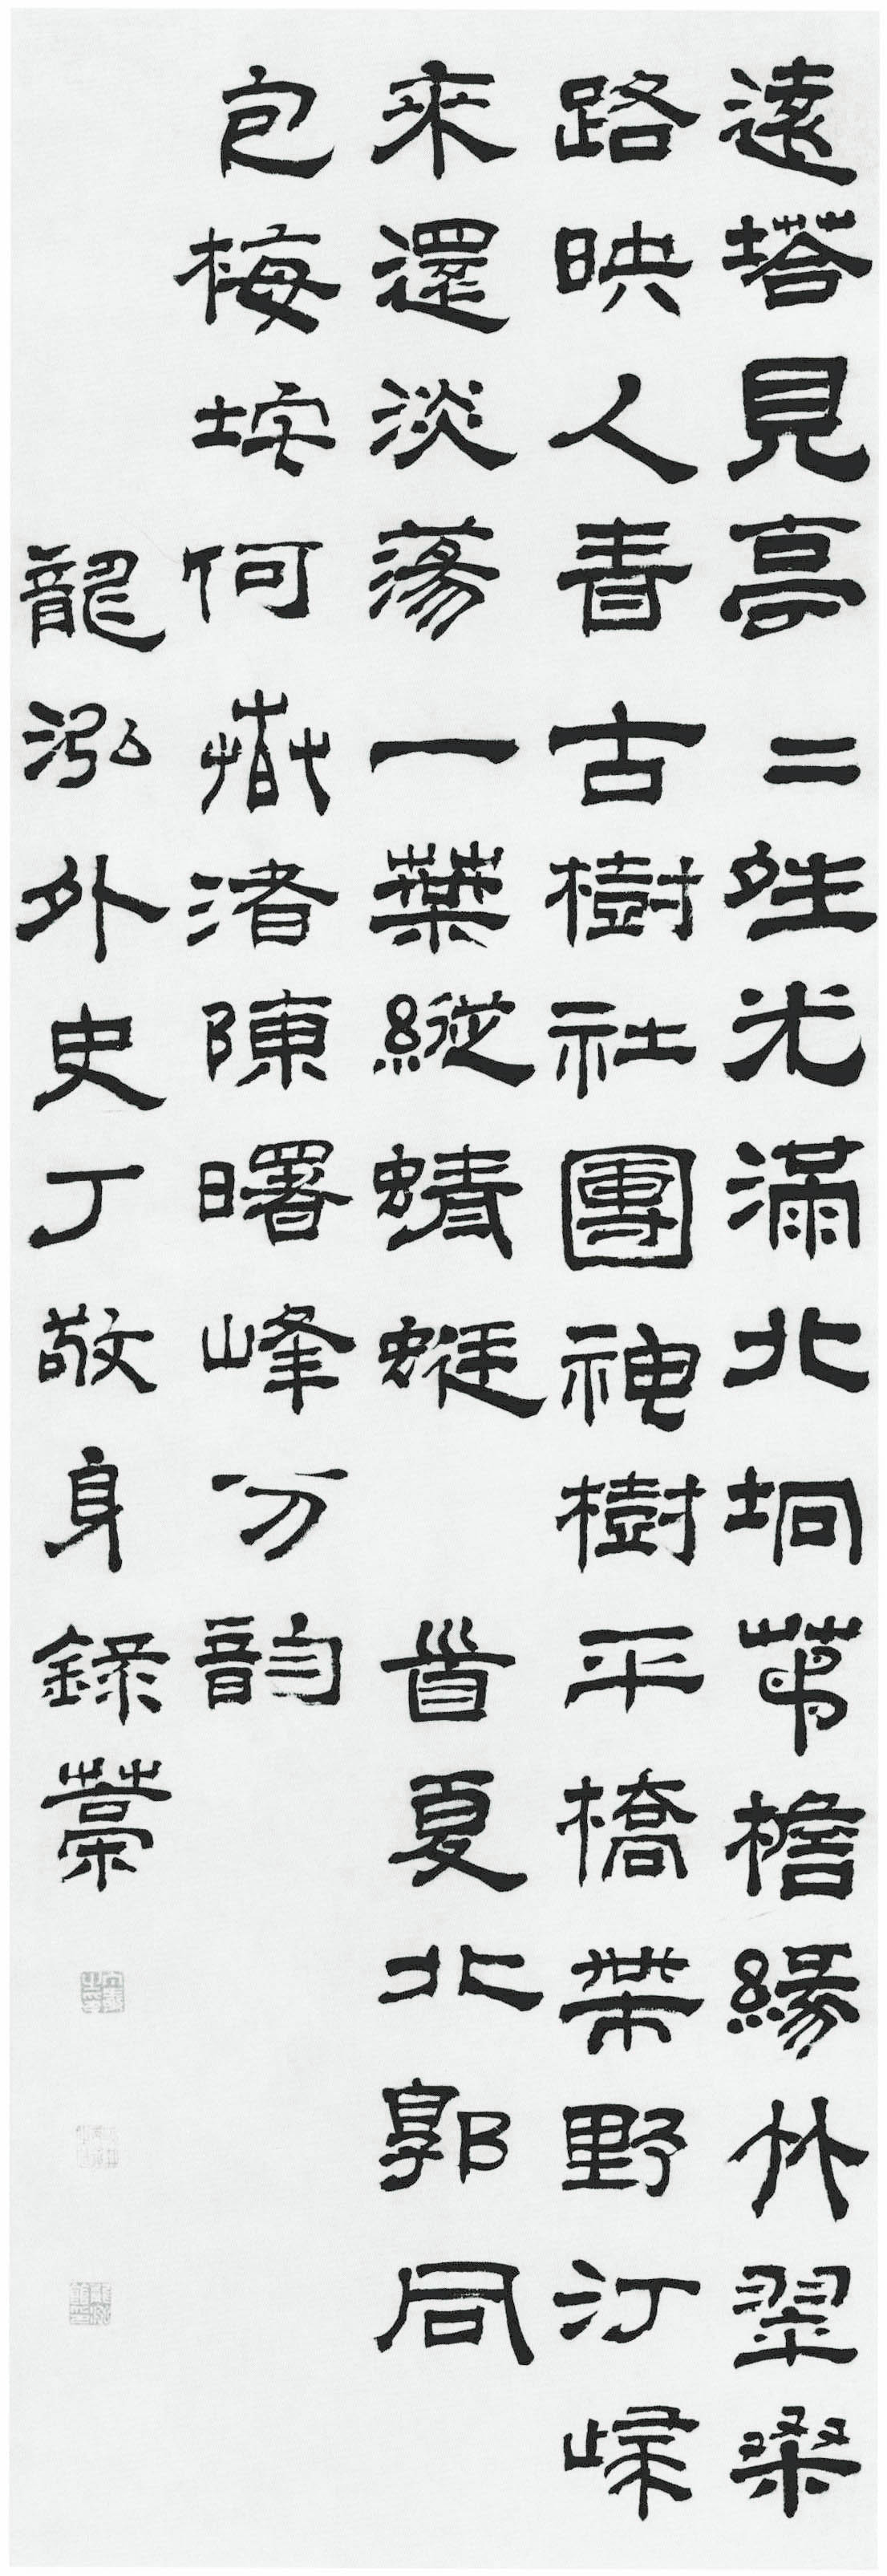 遠塔見亭二夝光滿北坰茅檐緣竹翠桑
路映人青古樹社團神樹平橋帶野汀歸
來還淡蕩一葉縱蜻蜓 首夏北郭同
包梅垵何春渚陳曙峰分韵
龍泓外史丁敬身錄藁